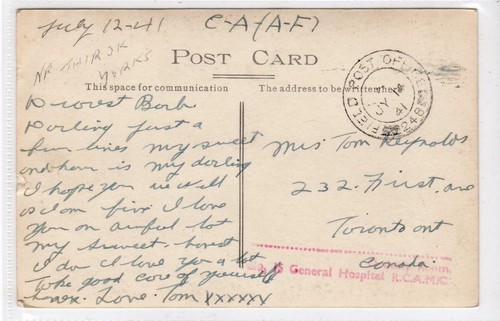 July 12-41 C-A (A-F)
NR THIRSK
YORKS
POST CARD
This space for communication
The address to be written here
FIELD POST OFFICE
JY 14
41
248
Dearest Barb
Darling just a
few lines my sweet
and how is my darling
I hope you are well
as I am fine I love
you on awful lot
my sweet heart
I do I love you a lot
Take good care of yourself
Love Tom XXXXXX
Mrs Tom Reynolds
232 First ave
Toronto ont
Canada
General Hospital R.C.A.M.C.